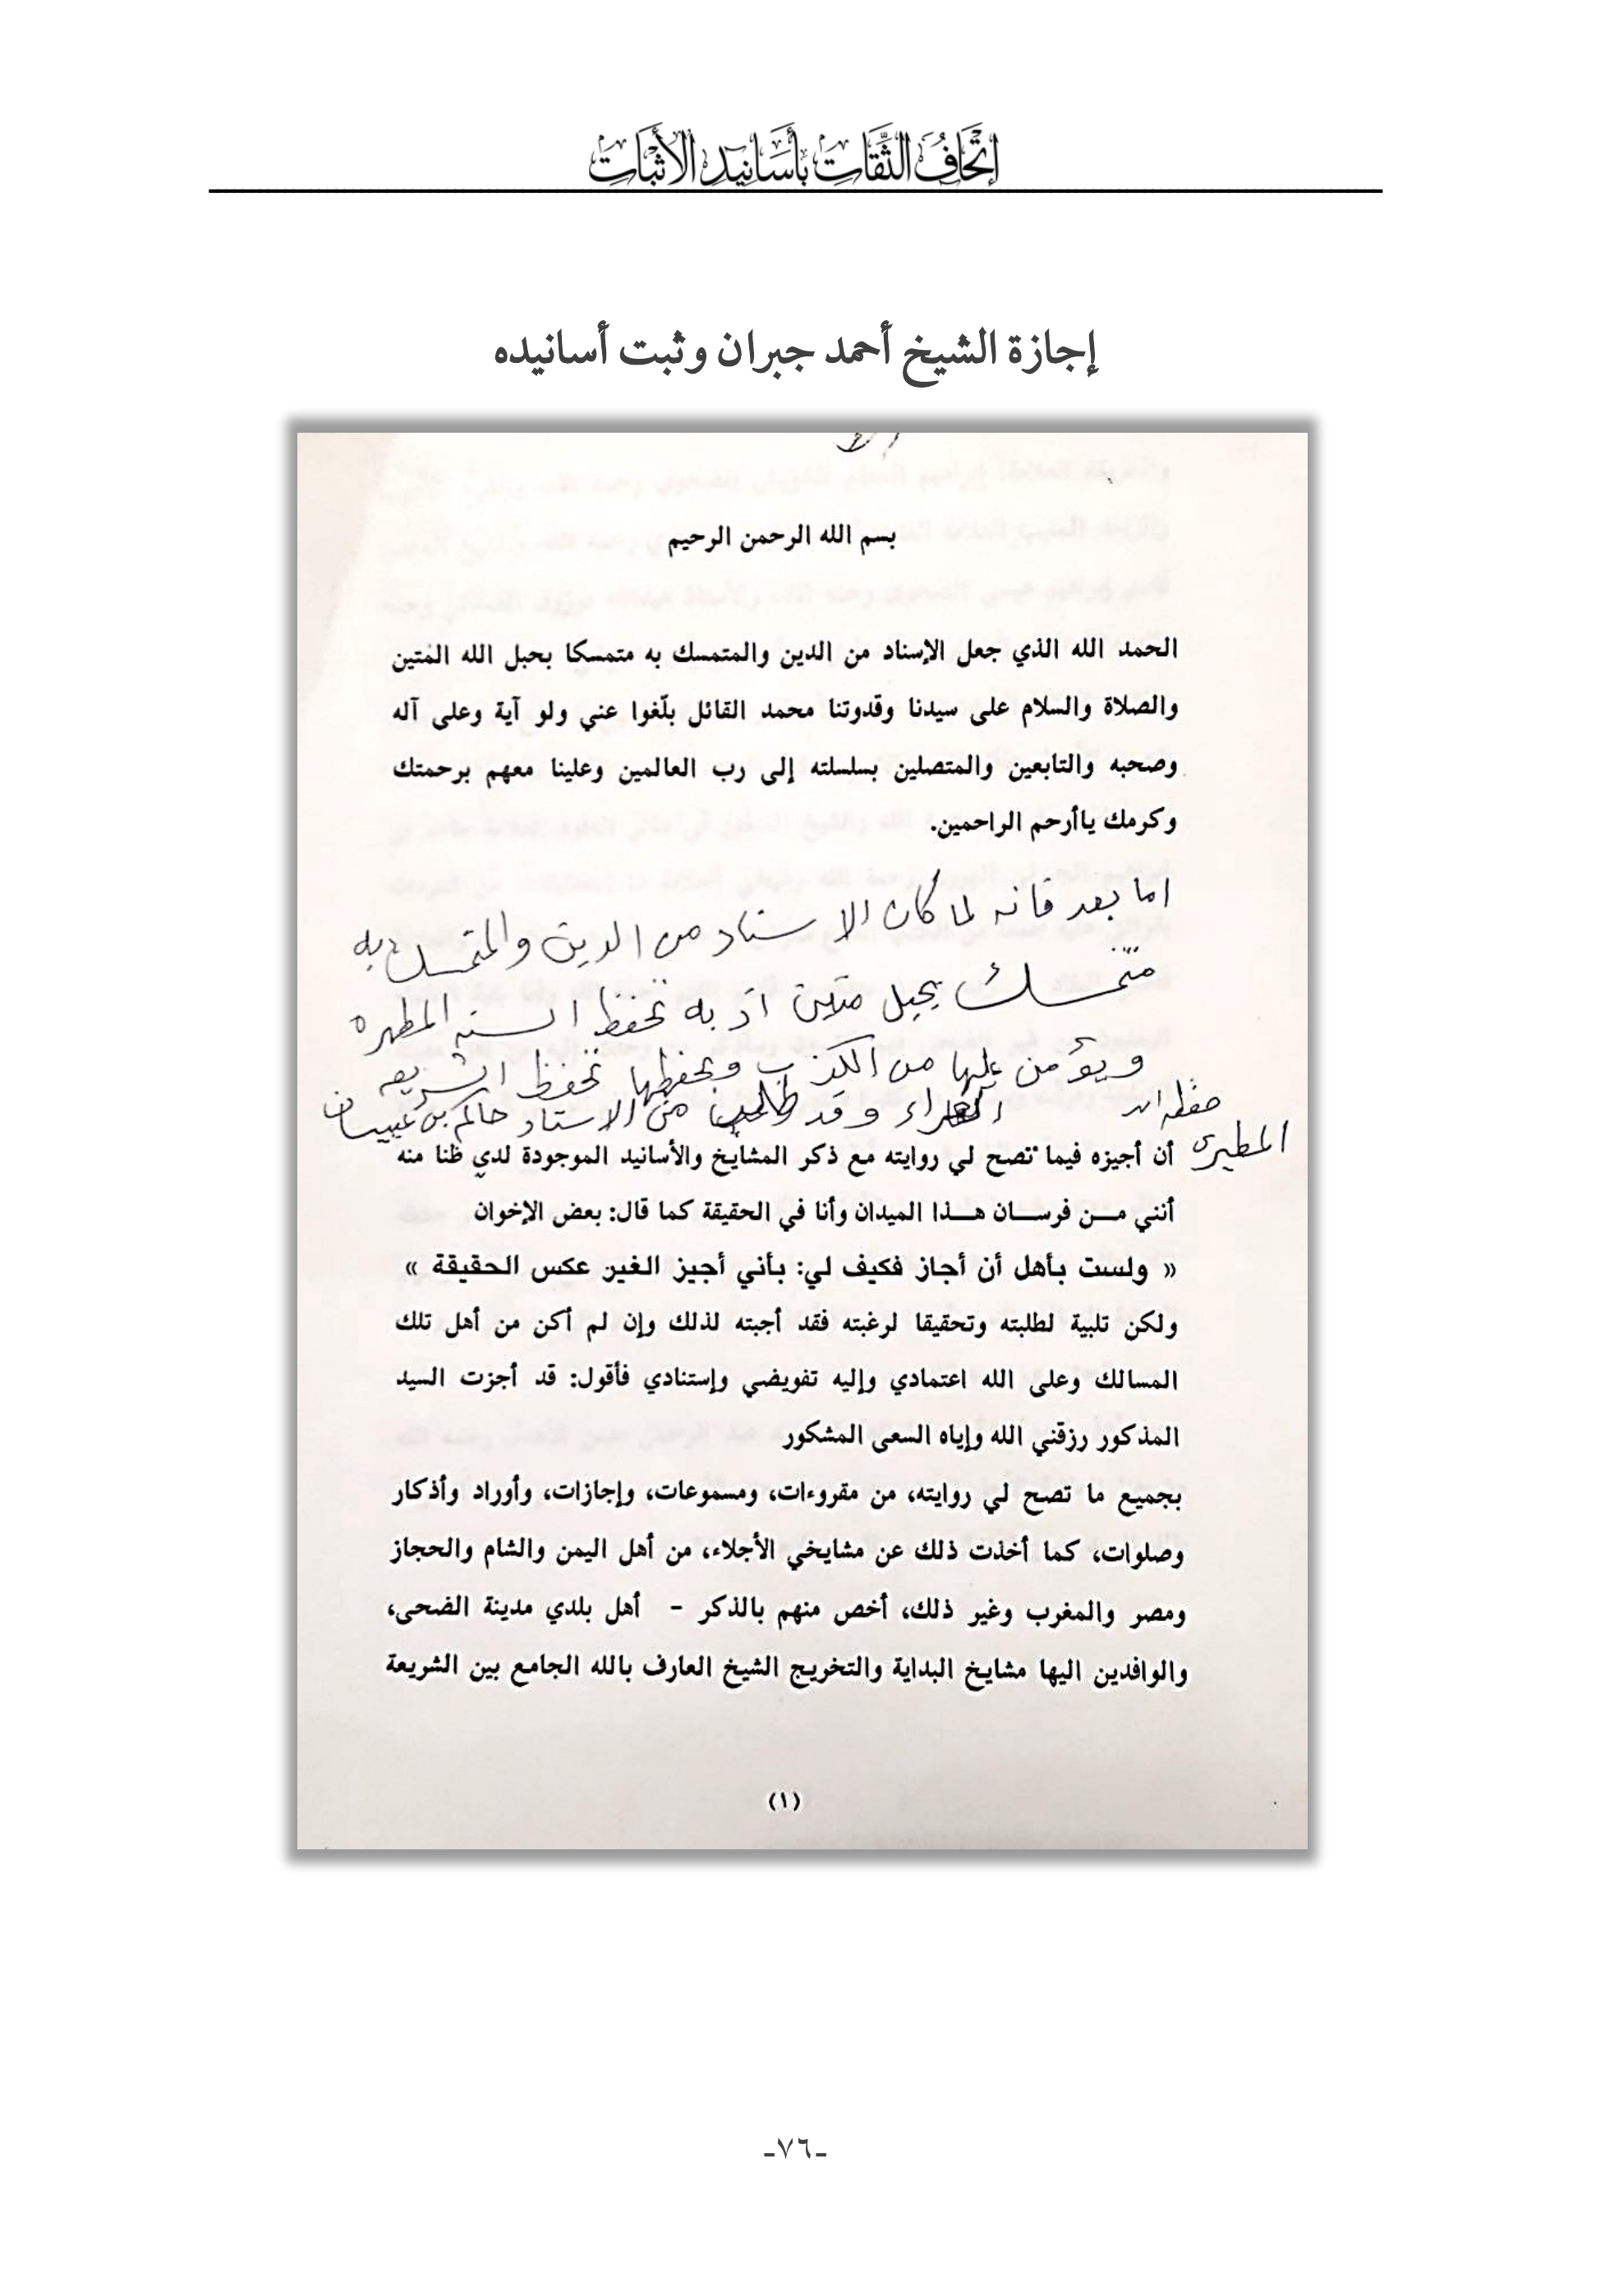 إتحاف الثقات بأسانيد الأثبات
إجازة الشيخ أحمد جبران وثبت أسانيده
بسم الله الرحمن الرحيم
الحمد الله الذي جعل الإسناد من الدين والمتمسك به متمسكا بحبل الله المتين
والصلاة والسلام على سيدنا وقدوتنا محمد القائل بلّغوا عني ولو آية وعلى آله
وصحبه والتابعين والمتصلين بسلسلته إلى رب العالمين وعلينا معهم برحمتك
وكرمك ياأرحم الراحمين.
اما بعد فانه لما كان الاسناد من الدين والمتمسك به
متمسك بحبل متين اذ به تحفظ السنه المطهره
ويؤمن عليها من الكذب وبحفظها تحفظ الشريعه
الغراء وقد طلب مني الاستاد حاكم بن عبيسان
المطيري حفظه الله
أن أجيزه فيما تصح لي روايته مع ذكر المشايخ والأسانيد الموجودة لدي ظنا منه
أنني مـن فرسـان هـذا الميدان وأنا في الحقيقة كما قال: بعض الإخوان
« ولست بأهل أن أجاز فكيف لي: بأني أجيز الغين عكس الحقيقة »
ولكن تلبية لطلبته وتحقيقا لرغبته فقد أجبته لذلك وإن لم أكن من أهل تلك
المسالك وعلى الله اعتمادي وإليه تفويضي وإستنادي فأقول: قد أجزت السيد
المذكور رزقني الله وإياه السعى المشكور
بجميع ما تصح لي روايته، من مقروءات، ومسموعات، وإجازات، وأوراد وأذكار
وصلوات، كما أخذت ذلك عن مشايخي الأجلاء، من أهل اليمن والشام والحجاز
ومصر والمغرب وغير ذلك، أخص منهم بالذكر - أهل بلدي مدينة الضحى،
والوافدين اليها مشايخ البداية والتخريج الشيخ العارف بالله الجامع بين الشريعة
(١)
-٧٦-